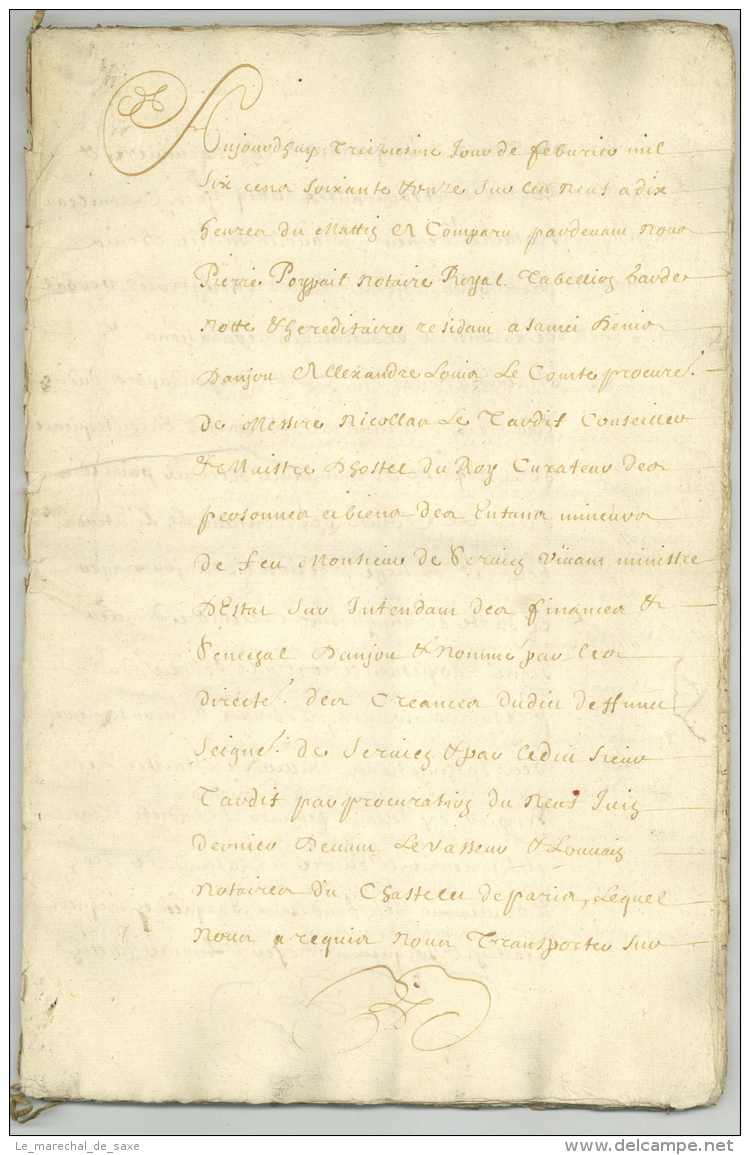 Aujourdhuy Treiziesme Jour de feburier mil
six cens soixante & onze sur les neuf a dix
heures du Mattin A Comparu pardevant nous
Pierre Poypail Notaire Royal Tabellion Garde
notte & hereditaire residant a Sainct Denis
Danjou Allexandre Louis Le Comte procure.r
de Messire Nicollas Le Tardif Conseiller
& Maistre Dhostel du Roy Curateur des
personnes et biens des Enfans mineurs
de feu Monsieur de Servien Vivant ministre
DEstat Sur Intendant des finances &
Senechal Danjou & Nommé par les
directe.rs des Creances dudict deffunct
Seigne.r de Servien & par ledict Sieur
Tardif par procuration du neuf Juin
dernier Devant Le Vasseur & Louvain
Notaires du Chastelet de paris, Lequel
Nous a requis nous Transporter sur
Le_marechal_de_saxe
delcampe.net